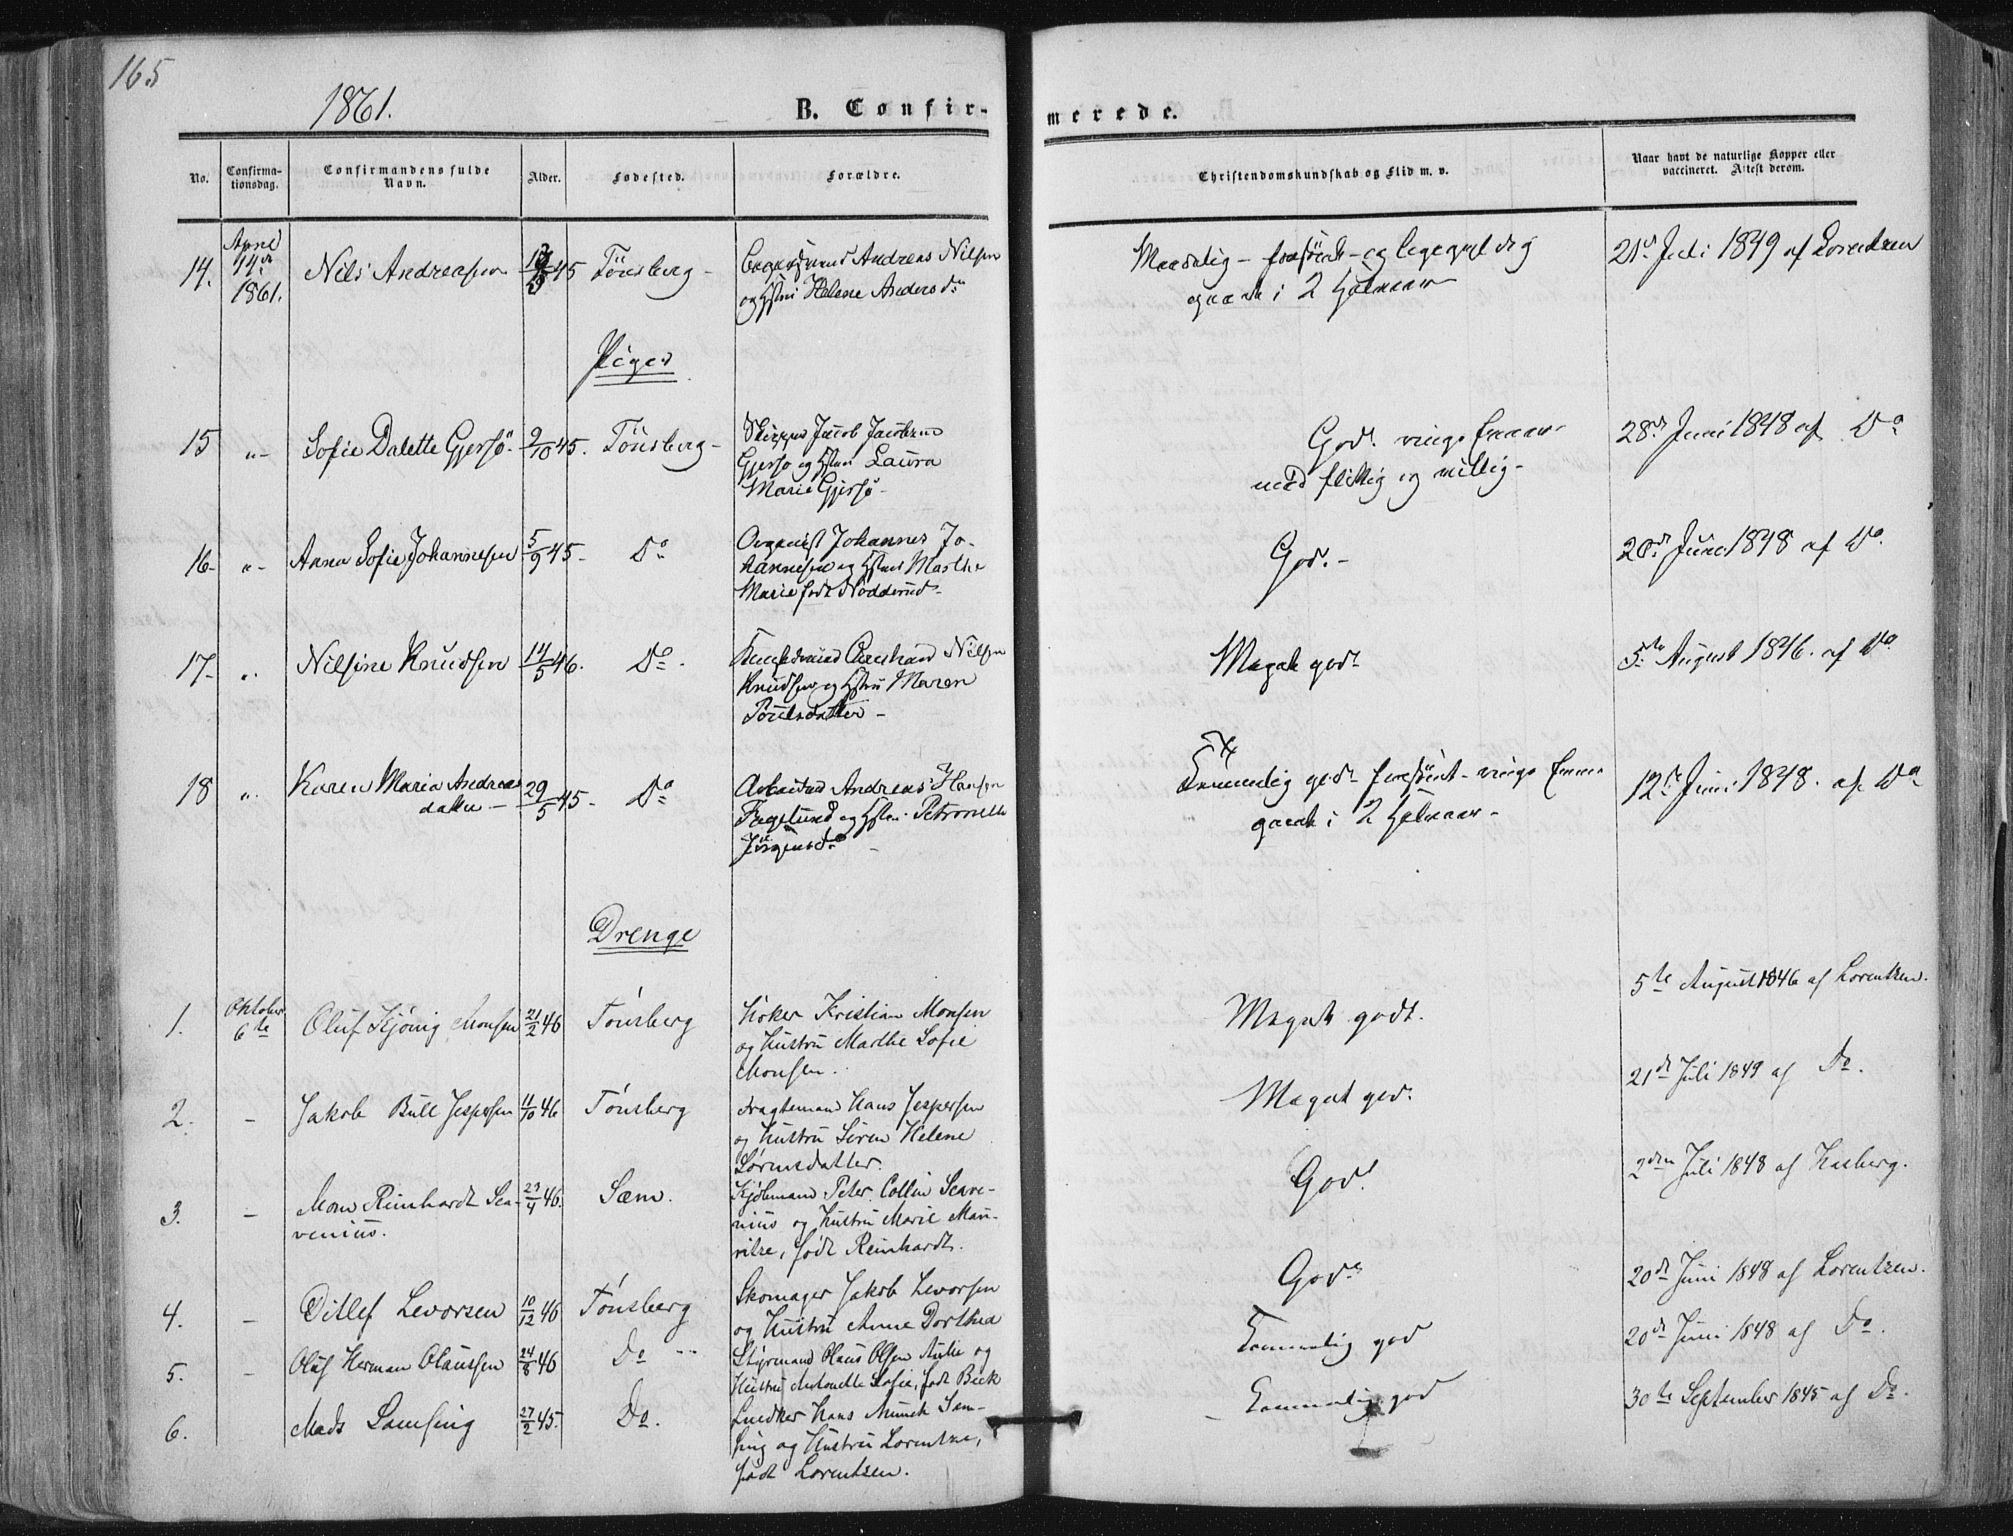 165
1861.
B. Confir-
merede.
No.
Confirma-
tionsdag.
Confirmandens fulde
Navn.
Alder.
Fødested.
Forældre.
Christendomskundskab og Flid m. v.
Naar havt de naturlige Kopper eller
vaccineret. Attest derom.
14.
April
14de
1861.
Nils Andreasen
45
Tönsberg -
Andreas Nilsen
og Hstru Helene Andersdr
Maadelig -
i 2 Halvaar
21de Juli 1849 af Lorentzen
Piger
15
" -
Sofie Dalette Gjersö -
2/10 45.
Tönsberg -
Skipper Jacob Jacobsen
Gjersö og Hstru Laura
Marie Gjersö -
God.
med flittig og villig -
28de Juni 1848 af Do
16-
" -
Anna Sofie Johannesen
5/9 45 -
Do
Organist Johannes Jo-
hannesen og Hstru Marthe
Marie født Nodderud -
God. -
20de Juni 1848 af Do.
17-
"
Nilsine Knudsen
14/5 46.
Do -
Nilsen
Knudsen og Hstru Maren
Poulsdatter -
Meget godt
5te August 1846. af Do
18
"
Karen Maria Andreas
datter -
29/5 45 -
Do
Arbeider Andreas Hansen
Fagelund og Hstru Petronelle
Jörgensdr -
Temmelig god
i 2 Halvaar -
12te Juni 1848. af Do
Drenge
1.
Oktober
6te
Oluf Kjönig Monsen
21/2 46
Tönsberg
Höker Kristian Monsen
og Hustru Marthe Sofie
Monsen.
Meget godt.
5te August 1846 af Lorentzen.
2.
-
Jakob Bull Jespersen
11/10 46
Tönsberg
Fragtemand Hans Jespersen
og Hustru Helene
Sörensdatter.
Meget god.
21de Juli 1849 af Do.
3.
-
Reinhardt Sca-
venius.
46.
Sæm.
Kjöbmand Peter Collin Scave-
nius og Hustru Marie Mau-
ritze, födt Reinhardt.
God.
2den Juli 1848 af
4.
-
Ditlef Levorsen
10/12 46
Tönsberg
Skomager Jakob Levorsen
og Hustru Anne Dorthea
God.
20de Juni 1848 af Lorentzen.
5.
-
Oluf Herman Olaussen
24/8 46
Do
Styrmand Olaus Olsen Aulie og
Hustru Antonette Sofie, født Beck
Temmelig god
20de Juni 1848 af Do.
6.
Mads Samsing
27/2 45.
Do.
Snedker Hans Munch Sam-
sing og Hustru Lorentze,
født Lorentzen.
- Temmelig god
30te September 1845 af Do.